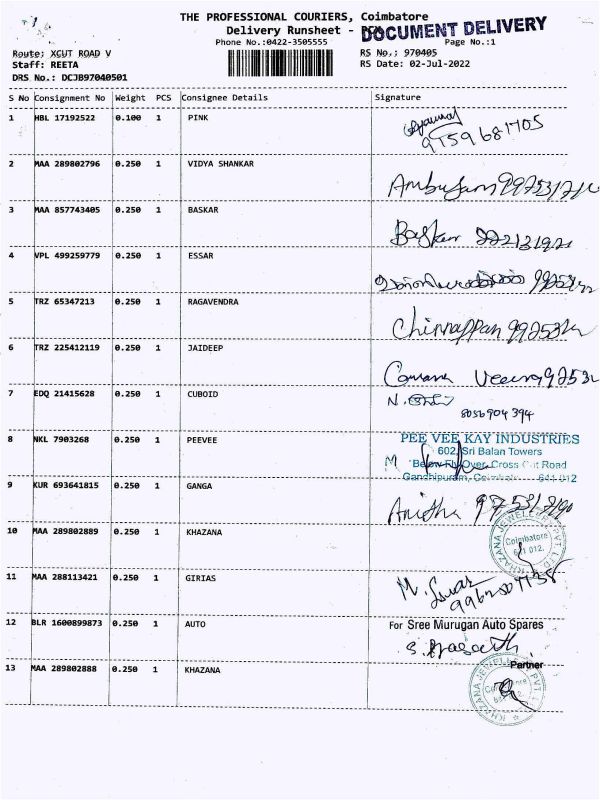 THE PROFESSIONAL COURIERS, Coimbatore
Delivery Runsheet -
DOCUMENT DELIVERY
Phone No.:0422-3505555
Page No.:1
Route: XCUT ROAD V
RS No.: 970405
Staff: REETA
RS Date: 02-Jul-2022
DRS No.: DCJB97040501
S No Consignment No Weight PCS Consignee Details Signature
1 HBL 17192522 0.100 1 PINK
9159681705
2 MAA 289802796 0.250 1 VIDYA SHANKAR
3 MAA 857743405 0.250 1 BASKAR
Basker
4 VPL 499259779 0.250 1 ESSAR
5 TRZ 65347213 0.250 1 RAGAVENDRA
Chinnappan
6 TRZ 225412119 0.250 1 JAIDEEP
7 EDQ 21415628 0.250 1 CUBOID
N.
8056904394
8 NKL 7903268 0.250 1 PEEVEE
PEE VEE KAY INDUSTRIES
602, Sri Balan Towers
Below Fly Over, Cross Cut Road
Gandhipuram, Coimbatore 641 012
9 KUR 693641815 0.250 1 GANGA
Anitha
10 MAA 289802889 0.250 1 KHAZANA
KHAZANA JEWELLERY PVT. LTD.
Coimbatore
641 012.
11 MAA 288113421 0.250 1 GIRIAS
12 BLR 1600899873 0.250 1 AUTO
For Sree Murugan Auto Spares
Partner
13 MAA 289802888 0.250 1 KHAZANA
KHAZANA JEWELLERY PVT. LTD.